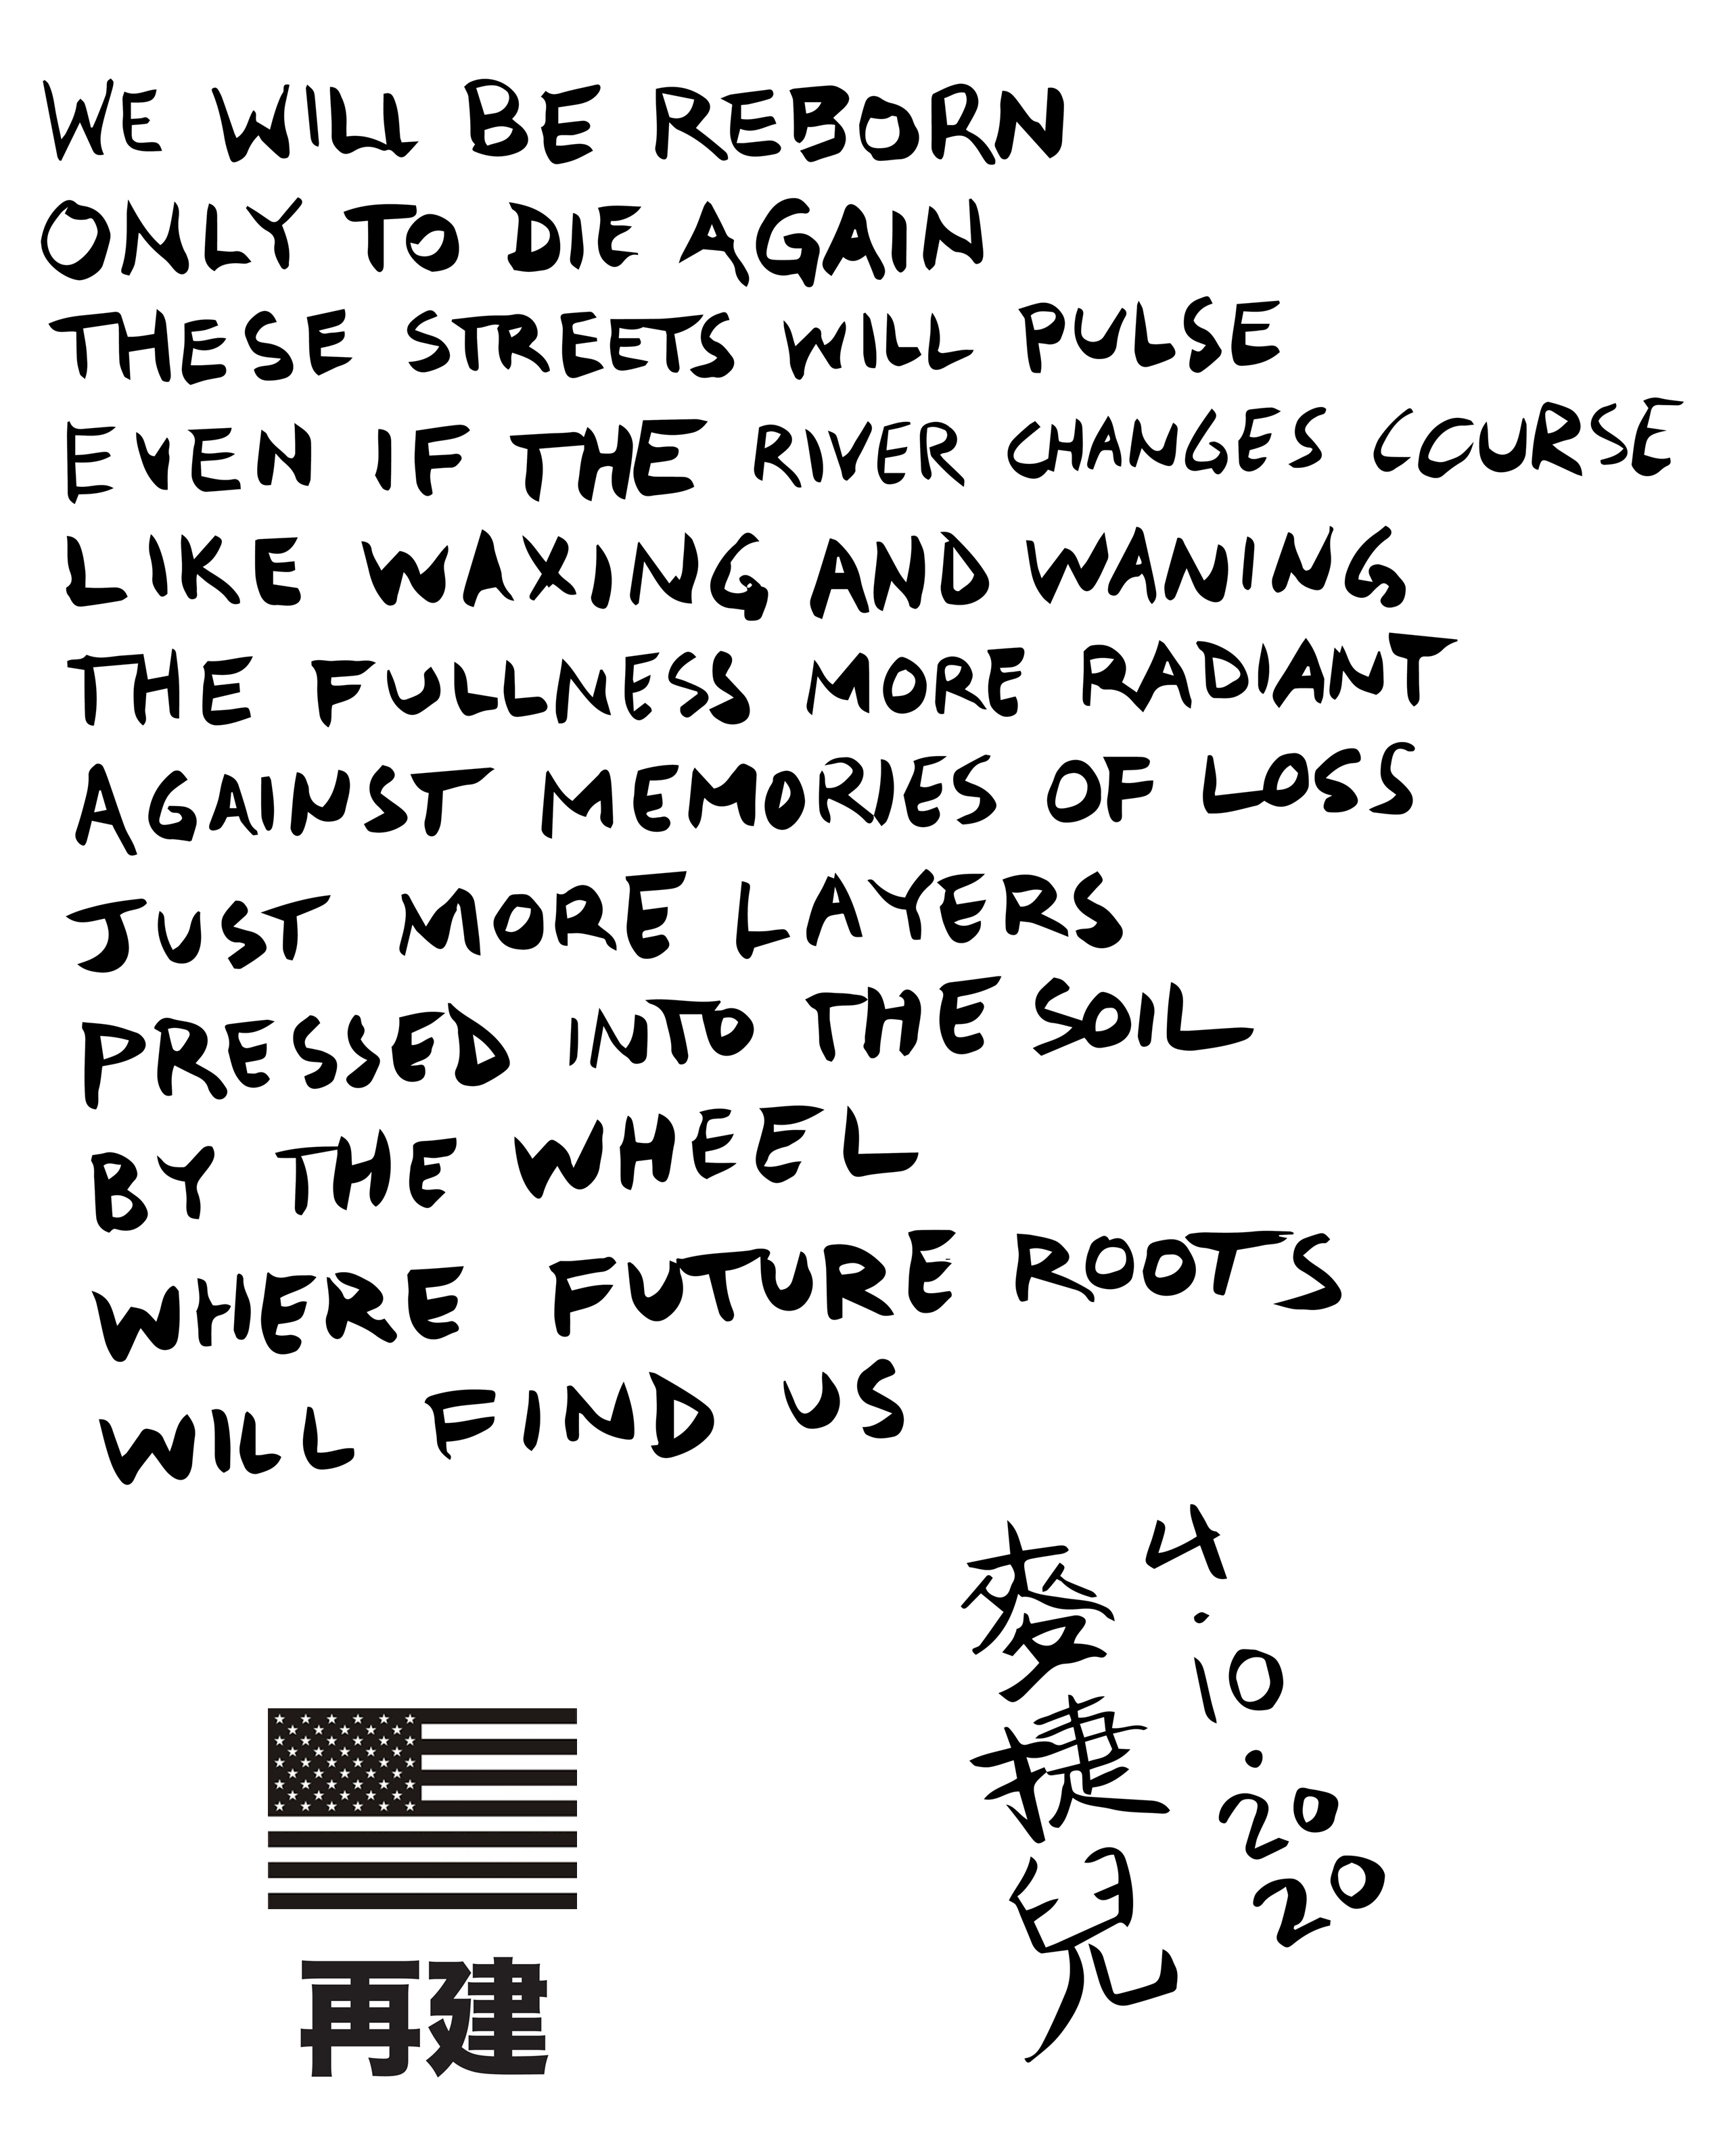 WE WILL BE REBORN
ONLY TO DIE AGAIN
THESE STREETS WILL PULSE
EVEN IF THE RIVER CHANGES COURSE
LIKE WAXING AND WANING
THE FULLNESS MORE RADIANT
AGAINST MEMORIES OF LOSS
JUST MORE LAYERS
PRESSED INTO THE SOIL
BY THE WHEEL
WHERE FUTURE ROOTS
WILL FIND US
麥捷兒
4.10.2020
再建